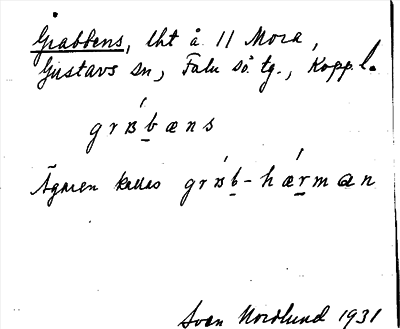 Grabbens, lht å 11 Mora,
Gustavs sn, Falu sö. tg., Kopp. l.
grʙ́b̲æns
Ägaren kallas grʙ́b̲-hǽr̲man
Sven Nordlund 1931